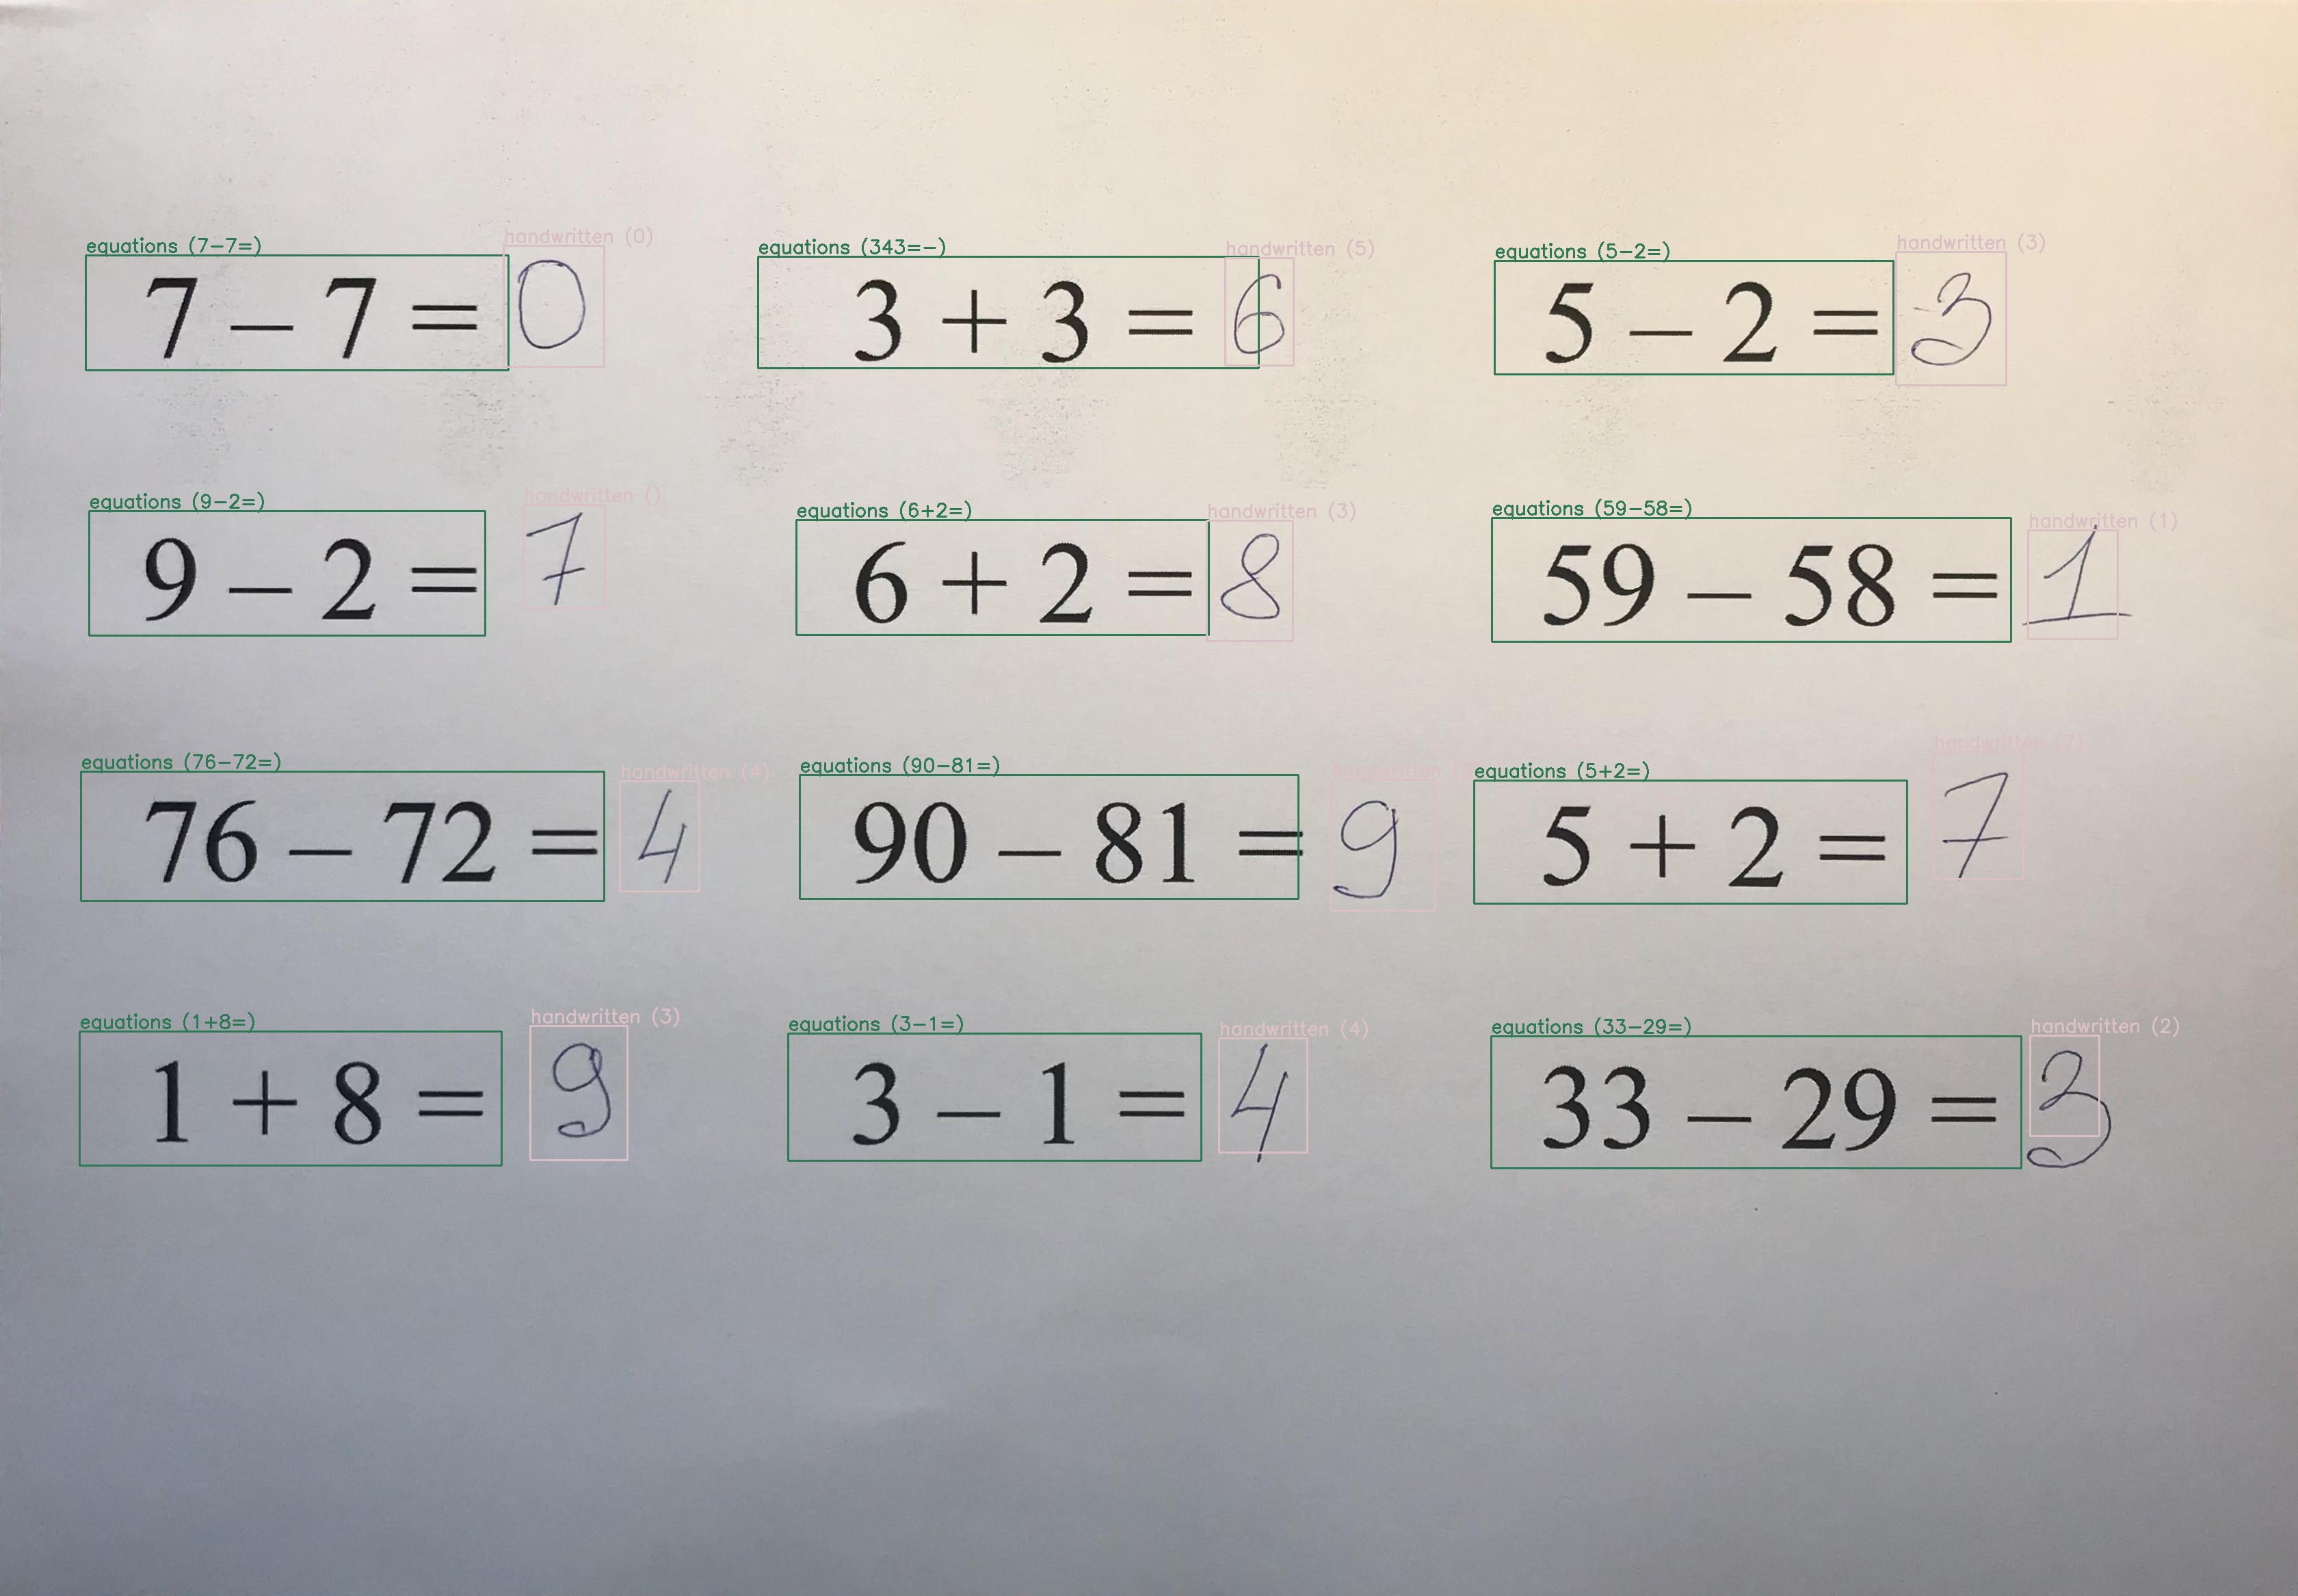 equations (7-7=) handwritten (0) equations (343=-) handwritten (5) equations (5-2=) handwritten (3)
7 – 7 = 0 3 + 3 = 6 5 – 2 = 3
equations (9-2=) handwritten () equations (6+2=) handwritten (3) equations (59-58=) handwritten (1)
9 – 2 = 7 6 + 2 = 8 59 – 58 = 1
equations (76-72=) handwritten (4) equations (90-81=) handwritten equations (5+2=) handwritten (7)
76 – 72 = 4 90 – 81 = 9 5 + 2 = 7
equations (1+8=) handwritten (3) equations (3-1=) handwritten (4) equations (33-29=) handwritten (2)
1 + 8 = 9 3 – 1 = 4 33 – 29 = 3